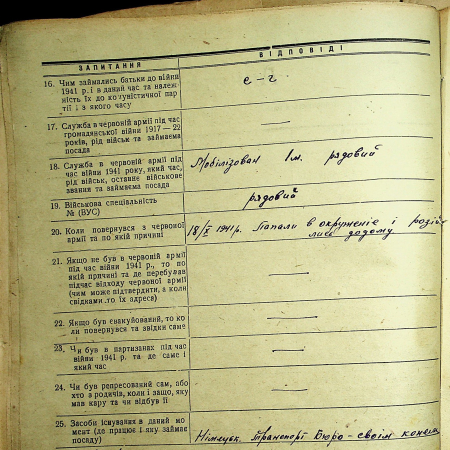 ЗАПИТАННЯ
ВІДПОВІДІ
16. Чим займались батьки до війни
1941 р. і в даний час та належ-
ність їх до комуністичної пар-
тії і з якого часу
с-г.
17. Служба в червоній армії під час
громадянської війни 1917—22
років, рід військ та займаєма
посада
—
18. Служба в червоній армії під
час війни 1941 року, який час,
рід військ, останнє військове
звання та займаєма посада
Мобілізован рядовий
19. Військова спеціальність
№ (ВУС)
рядовий
20. Коли повернувся з червоної
армії та по якій причині
18/X 1941р. Попали в окружение і розій-
лись додому
21. Якщо не був в червоній армії
під час війни 1941 р., то по
якій причині та де перебував
підчас відходу червоної армії
(чим може підтвердити, а коли
свідками, то їх адреса)
—
22. Якщо був евакуйований, то ко-
ли повернувся та звідки саме
—
23. Чи був в партизанах під час
війни 1941 р. та де саме і
який час
—
24. Чи був репресований сам, або
хто з родичів, коли і защо, яку
мав кару та чи відбув її
—
25. Засоби існування в даний мо-
мент (де працює і яку займає
посаду)
Транспорт Бюро - своїм конем